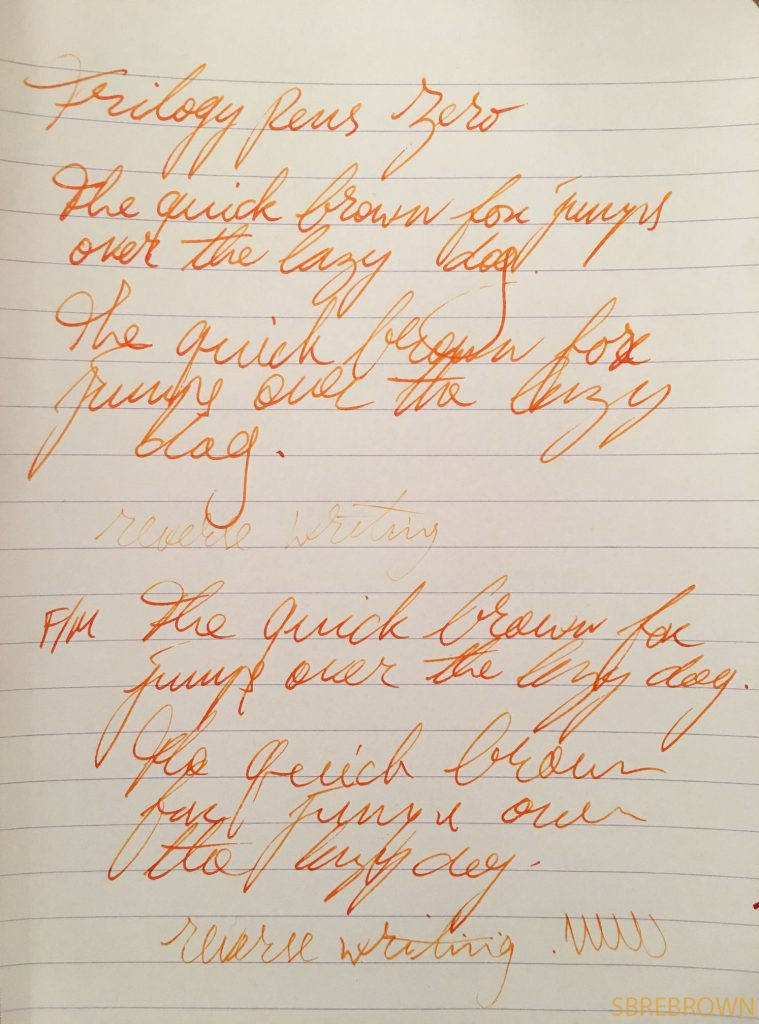 Trilogy Pens Zero
The quick brown fox jumps
over the lazy dog.
The quick brown fox
jumps over the lazy
dog.
reverse writing
F/M The quick brown fox
jumps over the lazy dog.
The quick brown
fox jumps over
the lazy dog.
reverse writing.
SBREBROWN